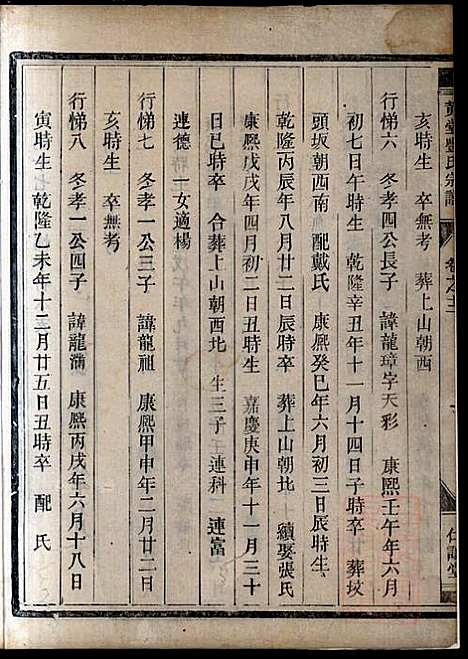 亥時生　卒無考　葬上山朝西
行悌六　冬孝四公長子　諱龍璋字天彩　康熙壬午年六月
初七日午時生　乾隆辛丑年十一月十四日子時卒　葬坟
頭坂朝西南　配戴氏　康熙癸巳年六月初三日辰時生
乾隆丙辰年八月廿二日辰時卒　葬上山朝北　續娶張氏
康熙戊戌年四月初二日丑時生　嘉慶庚申年十一月三十
日巳時卒　合葬上山朝西北　生三子　連科　連富
連德　一女適楊
行悌七　冬孝一公三子　諱龍祖　康熙甲申年二月廿二日
亥時生　卒無考
行悌八　冬孝一公四子　諱龍滿　康熙丙戌年六月十八日
寅時生　乾隆乙未年十二月廿五日丑時卒　配　氏
堂豐氏宗譜
卷之三
堂